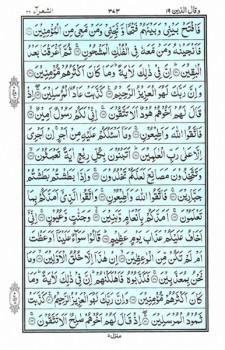 وقال الذين ١٩ ٣٤٣ الشعرآء ٢٦
فَافْتَحْ بَيْنِىْ وَبَيْنَهُمْ فَتْحًا وَّنَجِّنِىْ وَمَنْ مَّعِىَ مِنَ الْمُؤْمِنِيْنَ
فَاَنْجَيْنٰهُ وَمَنْ مَّعَهٗ فِى الْفُلْكِ الْمَشْحُوْنِ ثُمَّ اَغْرَقْنَا بَعْدُ
الْبٰقِيْنَ اِنَّ فِىْ ذٰلِكَ لَاٰيَةً وَمَا كَانَ اَكْثَرُهُمْ مُّؤْمِنِيْنَ
وَاِنَّ رَبَّكَ لَهُوَ الْعَزِيْزُ الرَّحِيْمُ كَذَّبَتْ عَادُ ۨالْمُرْسَلِيْنَ اِذْ
قَالَ لَهُمْ اَخُوْهُمْ هُوْدٌ اَلَا تَتَّقُوْنَ اِنِّىْ لَكُمْ رَسُوْلٌ اَمِيْنٌ
فَاتَّقُوا اللّٰهَ وَاَطِيْعُوْنِ وَمَآ اَسْئَلُكُمْ عَلَيْهِ مِنْ اَجْرٍ اِنْ اَجْرِىَ
اِلَّا عَلٰى رَبِّ الْعٰلَمِيْنَ اَتَبْنُوْنَ بِكُلِّ رِيْعٍ اٰيَةً تَعْبَثُوْنَ
وَتَتَّخِذُوْنَ مَصَانِعَ لَعَلَّكُمْ تَخْلُدُوْنَ وَاِذَا بَطَشْتُمْ بَطَشْتُمْ
جَبَّارِيْنَ فَاتَّقُوا اللّٰهَ وَاَطِيْعُوْنِ وَاتَّقُوا الَّذِىْٓ اَمَدَّكُمْ بِمَا
تَعْلَمُوْنَ اَمَدَّكُمْ بِاَنْعَامٍ وَّبَنِيْنَ وَجَنّٰتٍ وَّعُيُوْنٍ اِنِّىْٓ
اَخَافُ عَلَيْكُمْ عَذَابَ يَوْمٍ عَظِيْمٍ قَالُوْا سَوَآءٌ عَلَيْنَآ اَوَعَظْتَ
اَمْ لَمْ تَكُنْ مِّنَ الْوٰعِظِيْنَ اِنْ هٰذَآ اِلَّا خُلُقُ الْاَوَّلِيْنَ وَمَا
نَحْنُ بِمُعَذَّبِيْنَ فَكَذَّبُوْهُ فَاَهْلَكْنٰهُمْ اِنَّ فِىْ ذٰلِكَ لَاٰيَةً وَمَا
كَانَ اَكْثَرُهُمْ مُّؤْمِنِيْنَ وَاِنَّ رَبَّكَ لَهُوَ الْعَزِيْزُ الرَّحِيْمُ كَذَّبَتْ
ثَمُوْدُ الْمُرْسَلِيْنَ اِذْ قَالَ لَهُمْ اَخُوْهُمْ صٰلِحٌ اَلَا تَتَّقُوْنَ
منزل ٥